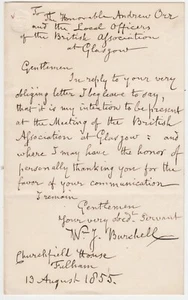 To The Honorable Andrew Orr
and the Local Officers
of the British Association
at Glasgow
Gentlemen
In reply to your very
obliging letter I beg leave to say,
that it is my intention to be present
at the Meeting of the British
Association at Glasgow; and
where I may have the honor of
personally thanking you for the
favor of your communication
I remain
Gentlemen
Your very obed.t Servant
Wm J. Burchell
Churchfield House
Fulham
13 August 1855.